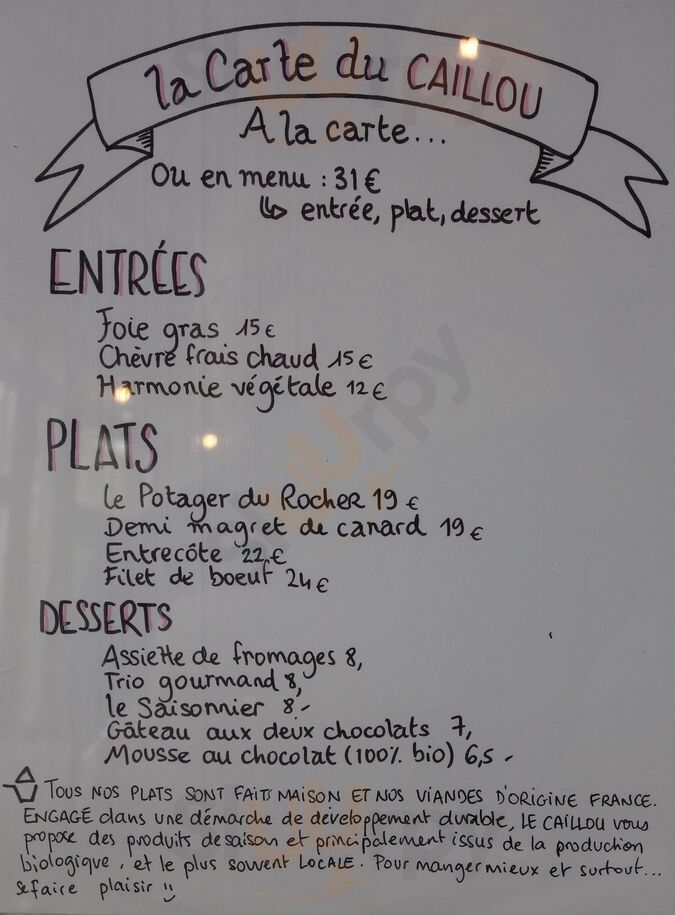 la Carte du CAILLOU
A la carte...
Ou en menu : 31 €
↳ entrée, plat, dessert
ENTRÉES
Foie gras 15 €
Chèvre frais chaud 15 €
Harmonie végétale 12 €
PLATS
le Potager du Rocher 19 €
Demi magret de canard 19 €
Entrecôte 22 €
Filet de boeuf 24 €
DESSERTS
Assiette de fromages 8,
Trio gourmand 8,
le Saisonnier 8.-
Gâteau aux deux chocolats 7,
Mousse au chocolat (100% bio) 6,5 -
TOUS NOS PLATS SONT FAITS MAISON ET NOS VIANDES D'ORIGINE FRANCE.
ENGAGÉ dans une démarche de développement durable, LE CAILLOU vous
propose des produits de saison et principalement issus de la production
biologique, et le plus souvent LOCALE. Pour manger mieux et surtout...
se faire plaisir